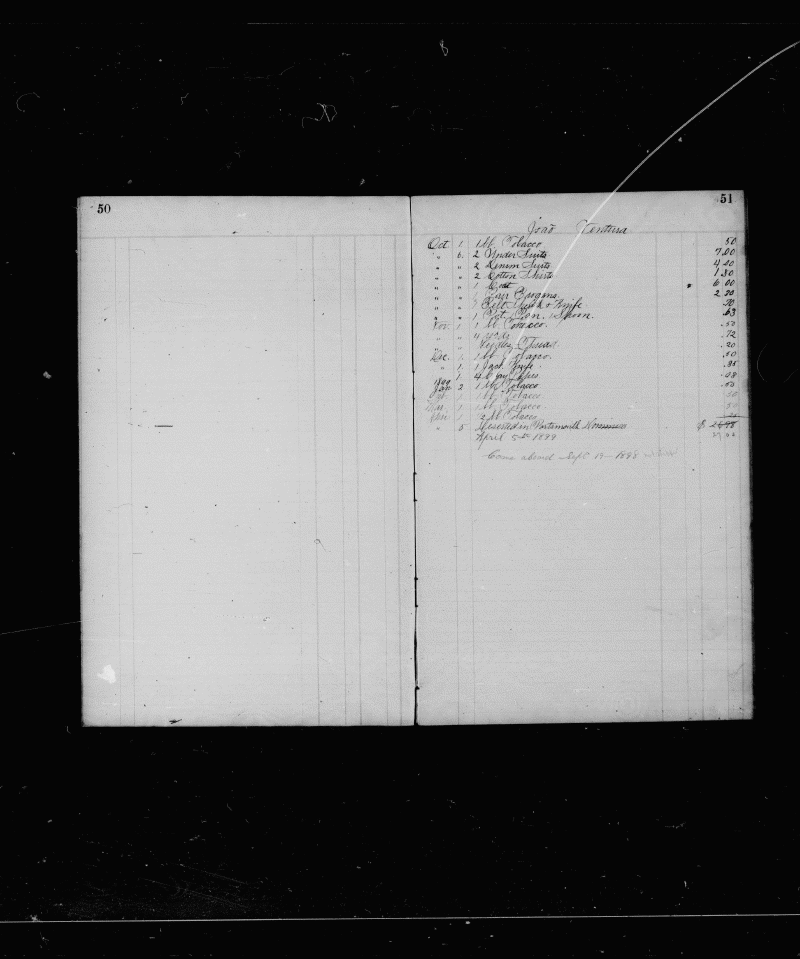 50
51
João Ventura
Oct. 1 1 lb. Tobacco .50
" 6 2 Under Suits 7.00
" " 2 Denim Suits 4.20
" " 2 Cotton Shirts 1.30
" " 1 Coat 6.00
" " 1 Pair Brogans 2.20
" " 1 Belt, Sheath & Knife .70
" " 1 Pot, Pan, Spoon. .63
Nov. 1 1 lb. Tobacco. .50
" " 4 .72
" " .20
Dec. 1 1 lb Tobacco. .50
" 1. 1 Jack Knife .35
" 1. 4 Clay Pipes .08
1899
Jan 2 1 lb Tobacco .50
Feb. 1 1 lb Tobacco. .50
Mar. 1 1 lb Tobacco. .50
2 lb Tobacco
" 5 Deserted in Portsmouth Dominica $
April 5th 1899
Came aboard Sept 19 1898